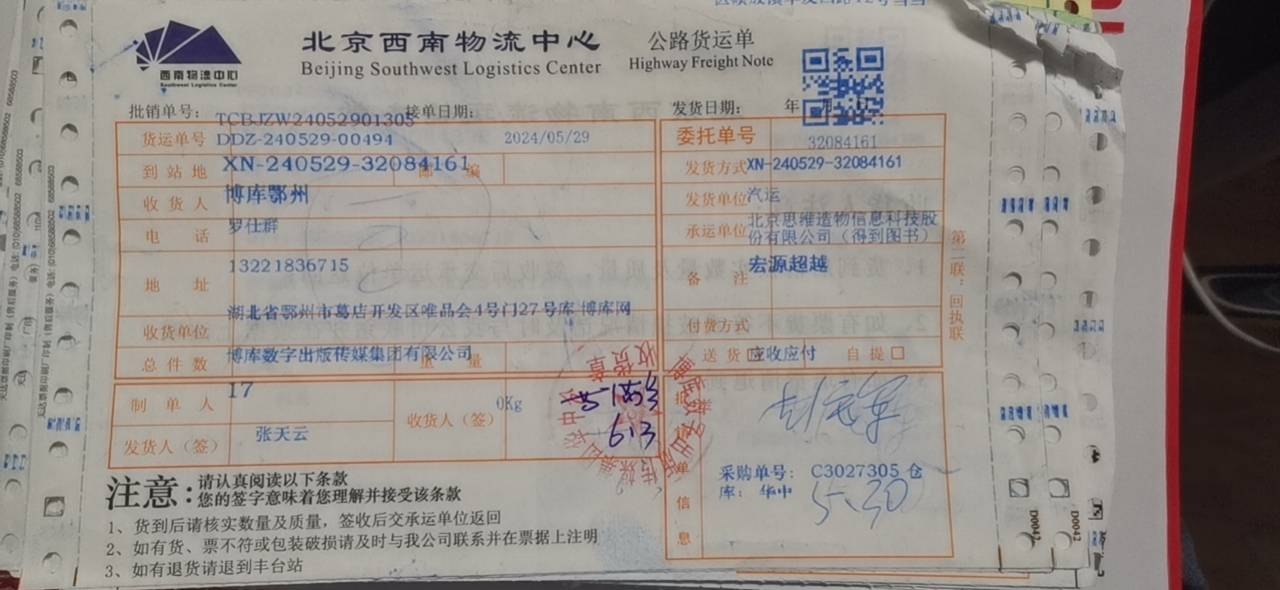 西南物流中心
Southwest Logistics Center
北京西南物流中心
Beijing Southwest Logistics Center
公路货运单
Highway Freight Note
批销单号：
TCBJZW24052901305
接单日期：
发货日期： 年 月 日
货运单号
DDZ-240529-00494
2024/05/29
委托单号
32084161
到站地
XN-240529-32084161
邮 编
发货方式
XN-240529-32084161
收货人
博库鄂州
发货单位
汽运
电 话
罗仕群
承运单位
北京思维造物信息科技股
份有限公司（得到图书）
地 址
13221836715
备 注
宏源超越
湖北省鄂州市葛店开发区唯品会4号门27号库 博库网
收货单位
付货方式
总件数
博库数字出版传媒集团有限公司
重 量
送 货
应收应付
自 提
制单人
17
收货人（签）
0Kg
收货章
613
发货人（签）
张天云
单
信
息
采购单号： C3027305 仓
库： 华中
5-30
第二联：回执联
注意：
请认真阅读以下条款
您的签字意味着您理解并接受该条款
1、货到后请核实数量及质量，签收后交承运单位返回
2、如有货、票不符或包装破损请及时与我公司联系并在票据上注明
3、如有退货请退到丰台站
D0042
D0042